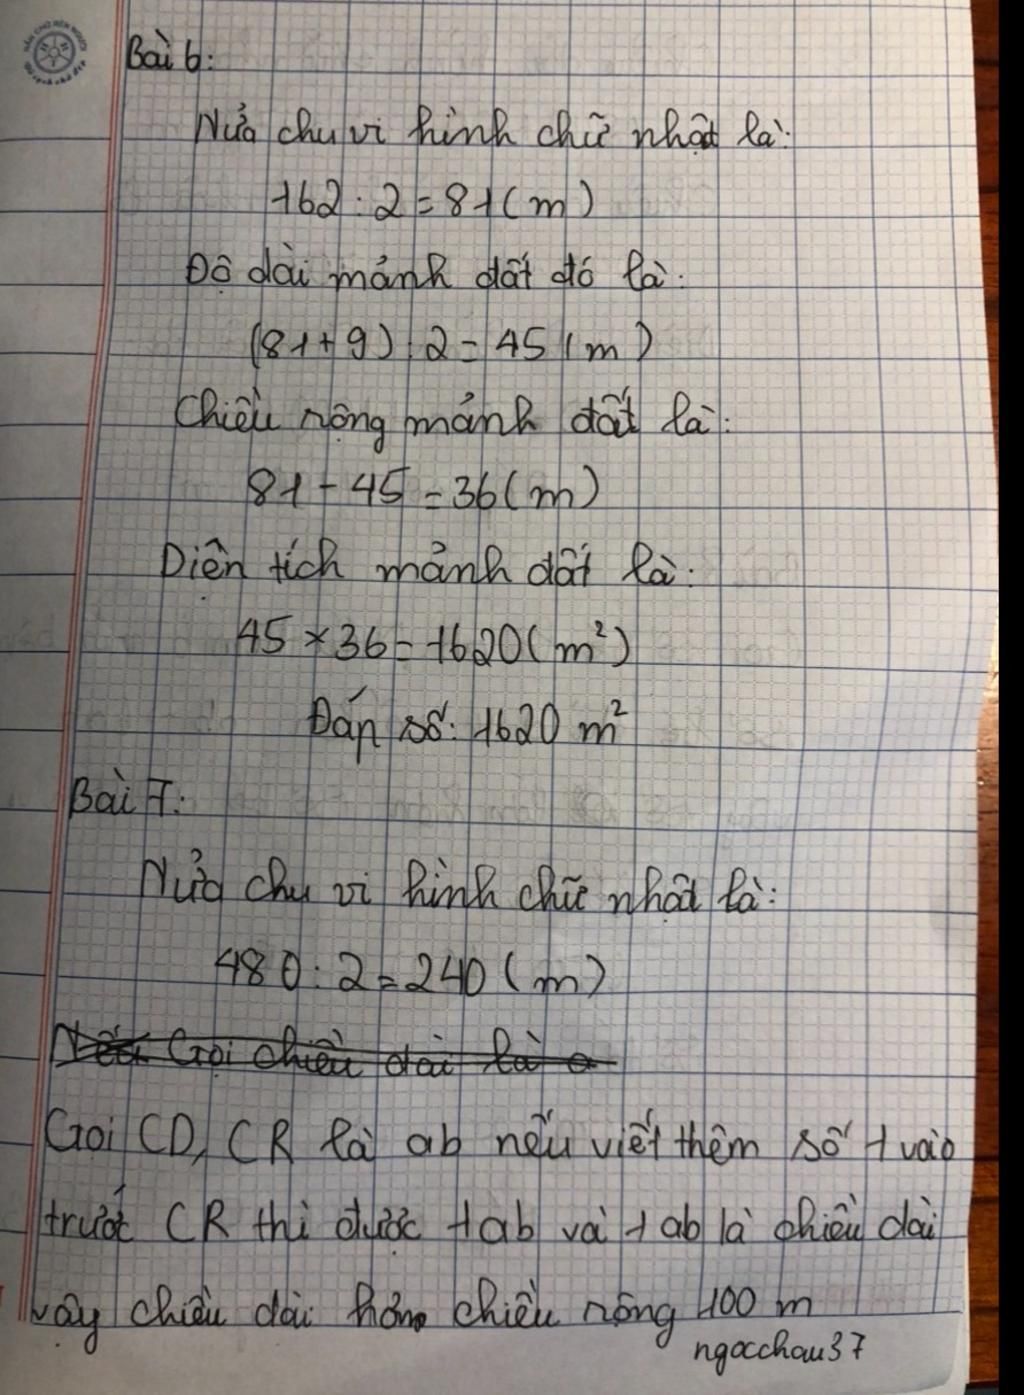 Bài 6:
Nửa chu vi hình chữ nhật là:
162 : 2 = 81 (m)
Độ dài mảnh đất đó là:
(81+9) : 2 = 45 (m)
Chiều rộng mảnh đất là:
81 - 45 = 36 (m)
Diện tích mảnh đất là:
45 × 36 = 1620 (m²)
Đáp số: 1620 m²
Bài 7:
Nửa chu vi hình chữ nhật là:
480 : 2 = 240 (m)
Gọi chiều dài là a
Gọi CD, CR là ab nếu viết thêm số 1 vào
trước CR thì được 1ab và 1ab là chiều dài
vậy chiều dài hơn chiều rộng 100 m
ngocchau37